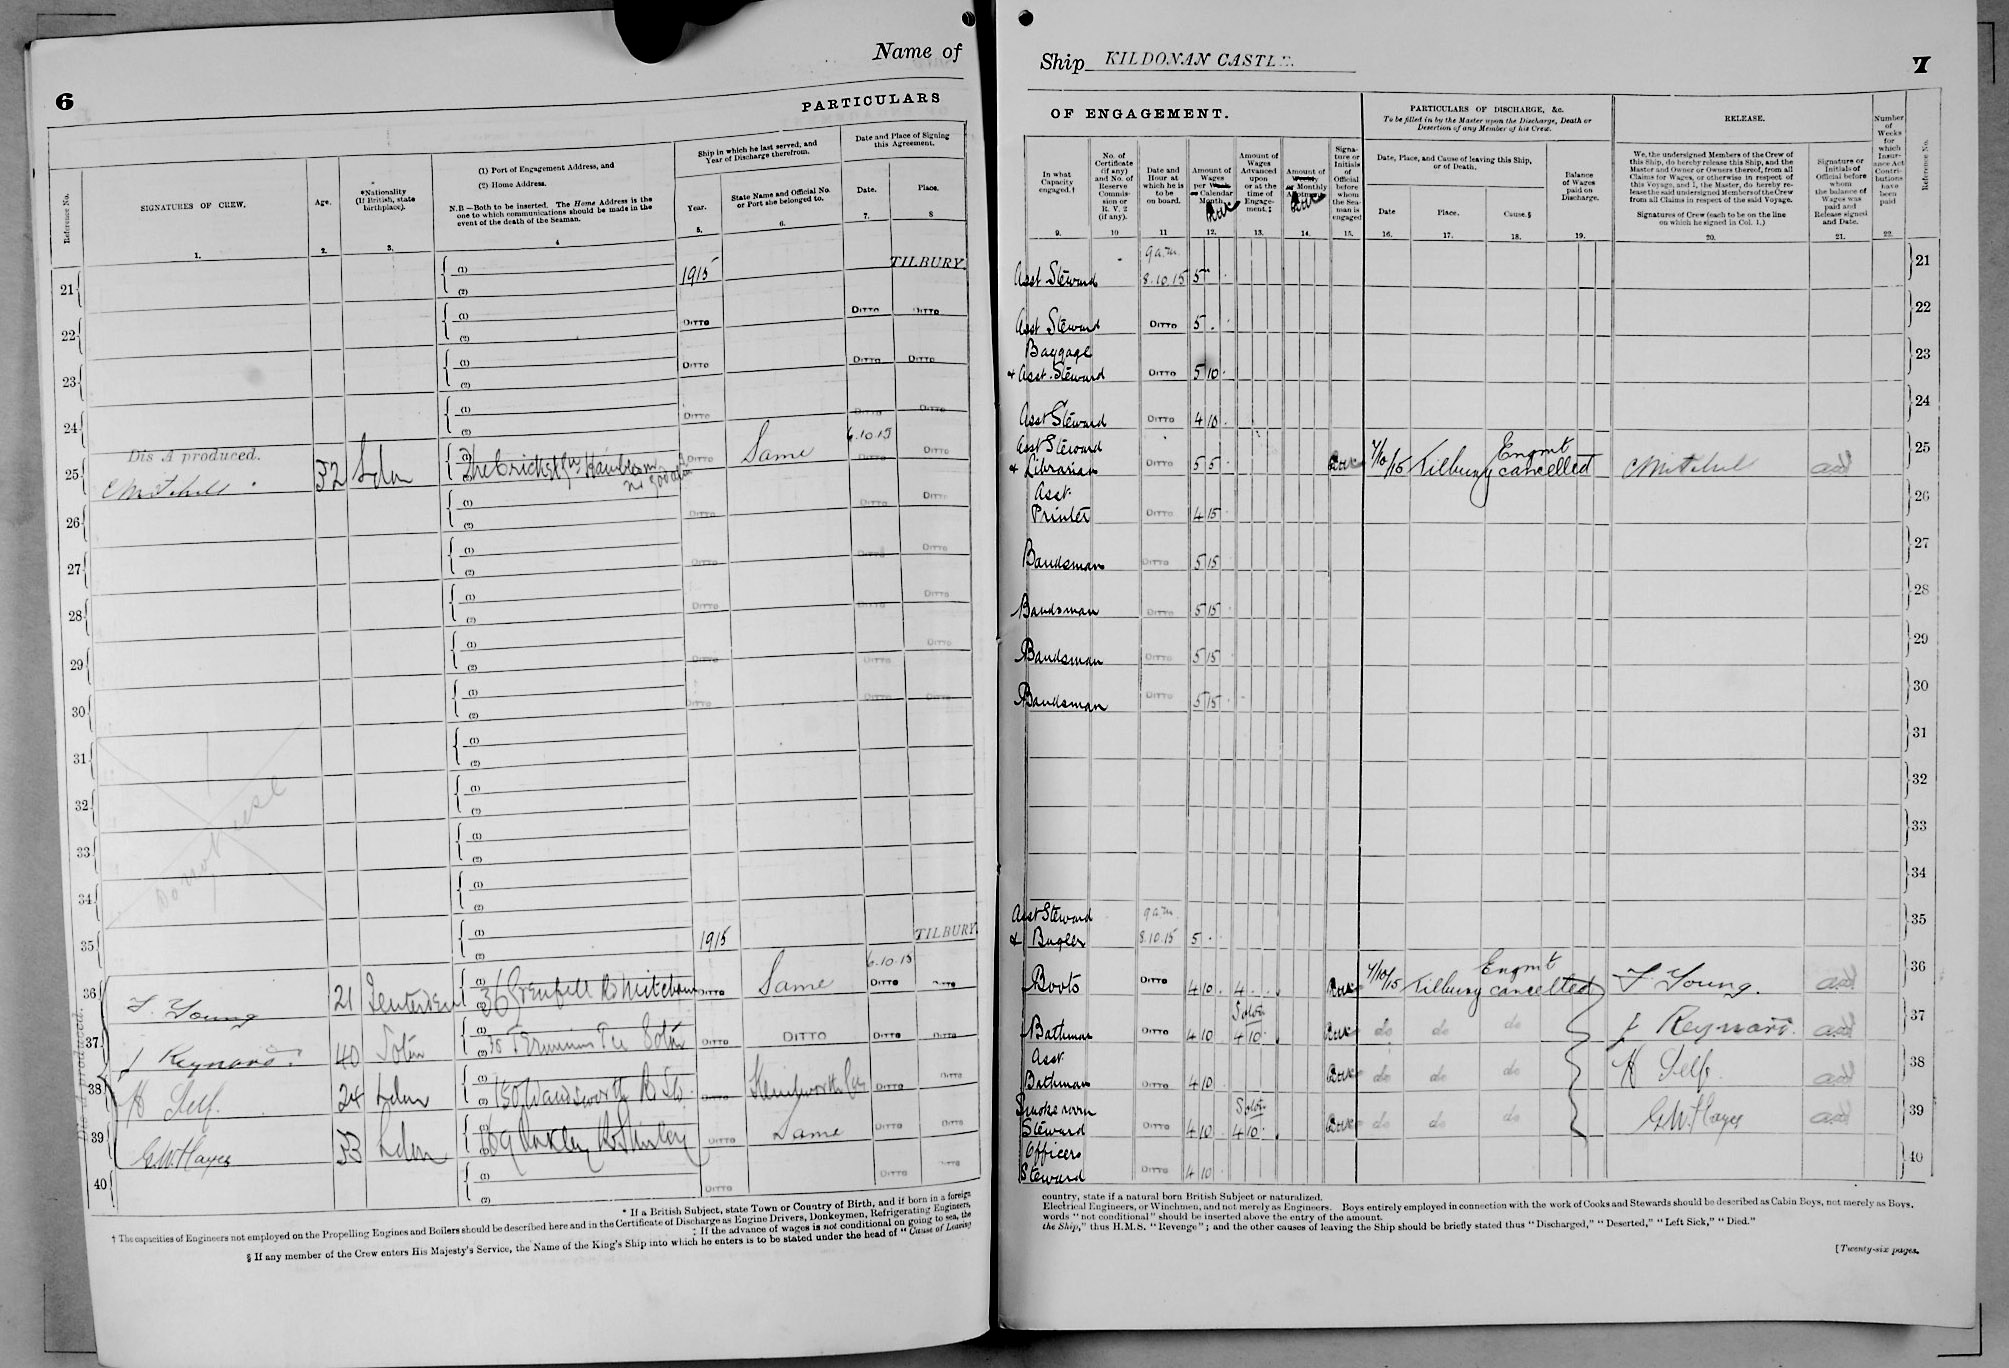 Name of
6
PARTICULARS
Reference No.
SIGNATURES OF CREW.
Age.
*Nationality
(If British, state
birthplace).
(1) Port of Engagement Address, and
(2) Home Address.
N.B.—Both to be inserted. The Home Address is the
one to which communications should be made in the
event of the death of the Seaman.
Ship in which he last served, and
Year of Discharge therefrom.
Year.
State Name and Official No.
or Port she belonged to.
Date and Place of Signing
this Agreement.
Date.
Place.
1. 2. 3. 4 5. 6. 7. 8
21 (1) (2) 1915 TILBURY.
22 (1) (2) DITTO DITTO DITTO
23 (1) (2) DITTO DITTO DITTO
24 (1) (2) DITTO DITTO DITTO
Dis A produced. 6.10.15
25 C Mitchell 32 Ldn DITTO Same DITTO DITTO
26 (1) (2) DITTO DITTO DITTO
27 (1) (2) DITTO DITTO DITTO
28 (1) (2) DITTO DITTO DITTO
29 (1) (2) DITTO DITTO DITTO
30 (1) (2) DITTO DITTO DITTO
31 (1) (2)
32 (1) (2)
33 (1) (2)
34 (1) (2)
Do not use
35 (1) (2) 1915 TILBURY
6.10.15
36 F. Young 21 Tenterden 36 Grenfell Rd Mitcham DITTO Same DITTO DITTO
37 J Reynard 40 Soton Terminus Ter Soton DITTO DITTO DITTO DITTO
38 H Self. 24 Ldn 150 Wandsworth Rd DITTO Kenilworth Cas DITTO DITTO
39 G.W. Hayes 33 Ldn Oakley Rd Shirley DITTO Same DITTO DITTO
40 (1) (2) DITTO DITTO DITTO
* If a British Subject, state Town or Country of Birth, and if born in a foreign
† The capacities of Engineers not employed on the Propelling Engines and Boilers should be described here and in the Certificate of Discharge as Engine Drivers, Donkeymen, Refrigerating Engineers,
‡ If the advance of wages is not conditional on going to sea, the
§ If any member of the Crew enters His Majesty's Service, the Name of the King's Ship into which he enters is to be stated under the head of "Cause of Leaving
Ship KILDONAN CASTLE.
7
OF ENGAGEMENT.
PARTICULARS OF DISCHARGE, &c.
To be filled in by the Master upon the Discharge, Death or
Desertion of any Member of his Crew.
RELEASE.
Number
of
Weeks
for
which
Insur-
ance Act
Contri-
butions
have
been
paid
Reference No.
In what
Capacity
engaged.†
No. of
Certificate
(if any)
and No. of
Reserve
Commis-
sion or
R. V. 2
(if any).
Date and
Hour at
which he is
to be
on board.
Amount of
Wages
per Week
or Calendar
Month
Amount of
Wages
Advanced
upon
or at the
time of
Engage-
ment.‡
Amount of
Weekly
or Monthly
Allotment
Signa-
ture or
Initials
of
Official
before
whom
the Sea-
man is
engaged
Date, Place, and Cause of leaving this Ship,
or of Death.
Date
Place.
Cause.§
Balance
of Wages
paid on
Discharge.
We, the undersigned Members of the Crew of
this Ship, do hereby release this Ship, and the
Master and Owner or Owners thereof, from all
Claims for Wages, or otherwise in respect of
this Voyage, and I, the Master, do hereby re-
lease the said undersigned Members of the Crew
from all Claims in respect of the said Voyage.
Signatures of Crew (each to be on the line
on which he signed in Col. 1.)
Signature or
Initials of
Official before
whom
the balance of
Wages was
paid and
Release signed
and Date.
9. 10 11 12. 13. 14. 15. 16. 17. 18. 19. 20. 21. 22.
9 a.m.
Asst Steward 8.10.15 5 - 21
Asst Steward DITTO 5 . 22
Baggage
& Asst. Steward DITTO 5 10 . 23
Asst Steward DITTO 4 10 . 24
Asst Steward
& Librarian DITTO 5 5 7/10/15 Tilbury Engmt cancelled C Mitchell 25
Asst.
Printer DITTO 4 15 26
Bandsman DITTO 5 15 27
Bandsman DITTO 5 15 28
Bandsman DITTO 5 15 29
Bandsman DITTO 5 15 30
31
32
33
34
Asst Steward 9 a.m.
& Bugler 8.10.15 5 - 35
Boots DITTO 4 10 . 4 . . 7/10/15 Tilbury Engmt cancelled F. Young. 36
Soton
Bathman DITTO 4 10 4 10 do do do J Reynard. 37
Asst.
Bathman DITTO 4 10 do do do H Self. 38
Smoke room Soton
Steward DITTO 4 10 4 10 do do do G.W. Hayes 39
Officers
Steward DITTO 4 10 40
country, state if a natural born British Subject or naturalized.
Electrical Engineers, or Winchmen, and not merely as Engineers. Boys entirely employed in connection with the work of Cooks and Stewards should be described as Cabin Boys, not merely as Boys.
words "not conditional" should be inserted above the entry of the amount.
the Ship," thus H.M.S. "Revenge"; and the other causes of leaving the Ship should be briefly stated thus "Discharged," "Deserted," "Left Sick," "Died."
[Twenty-six pages.